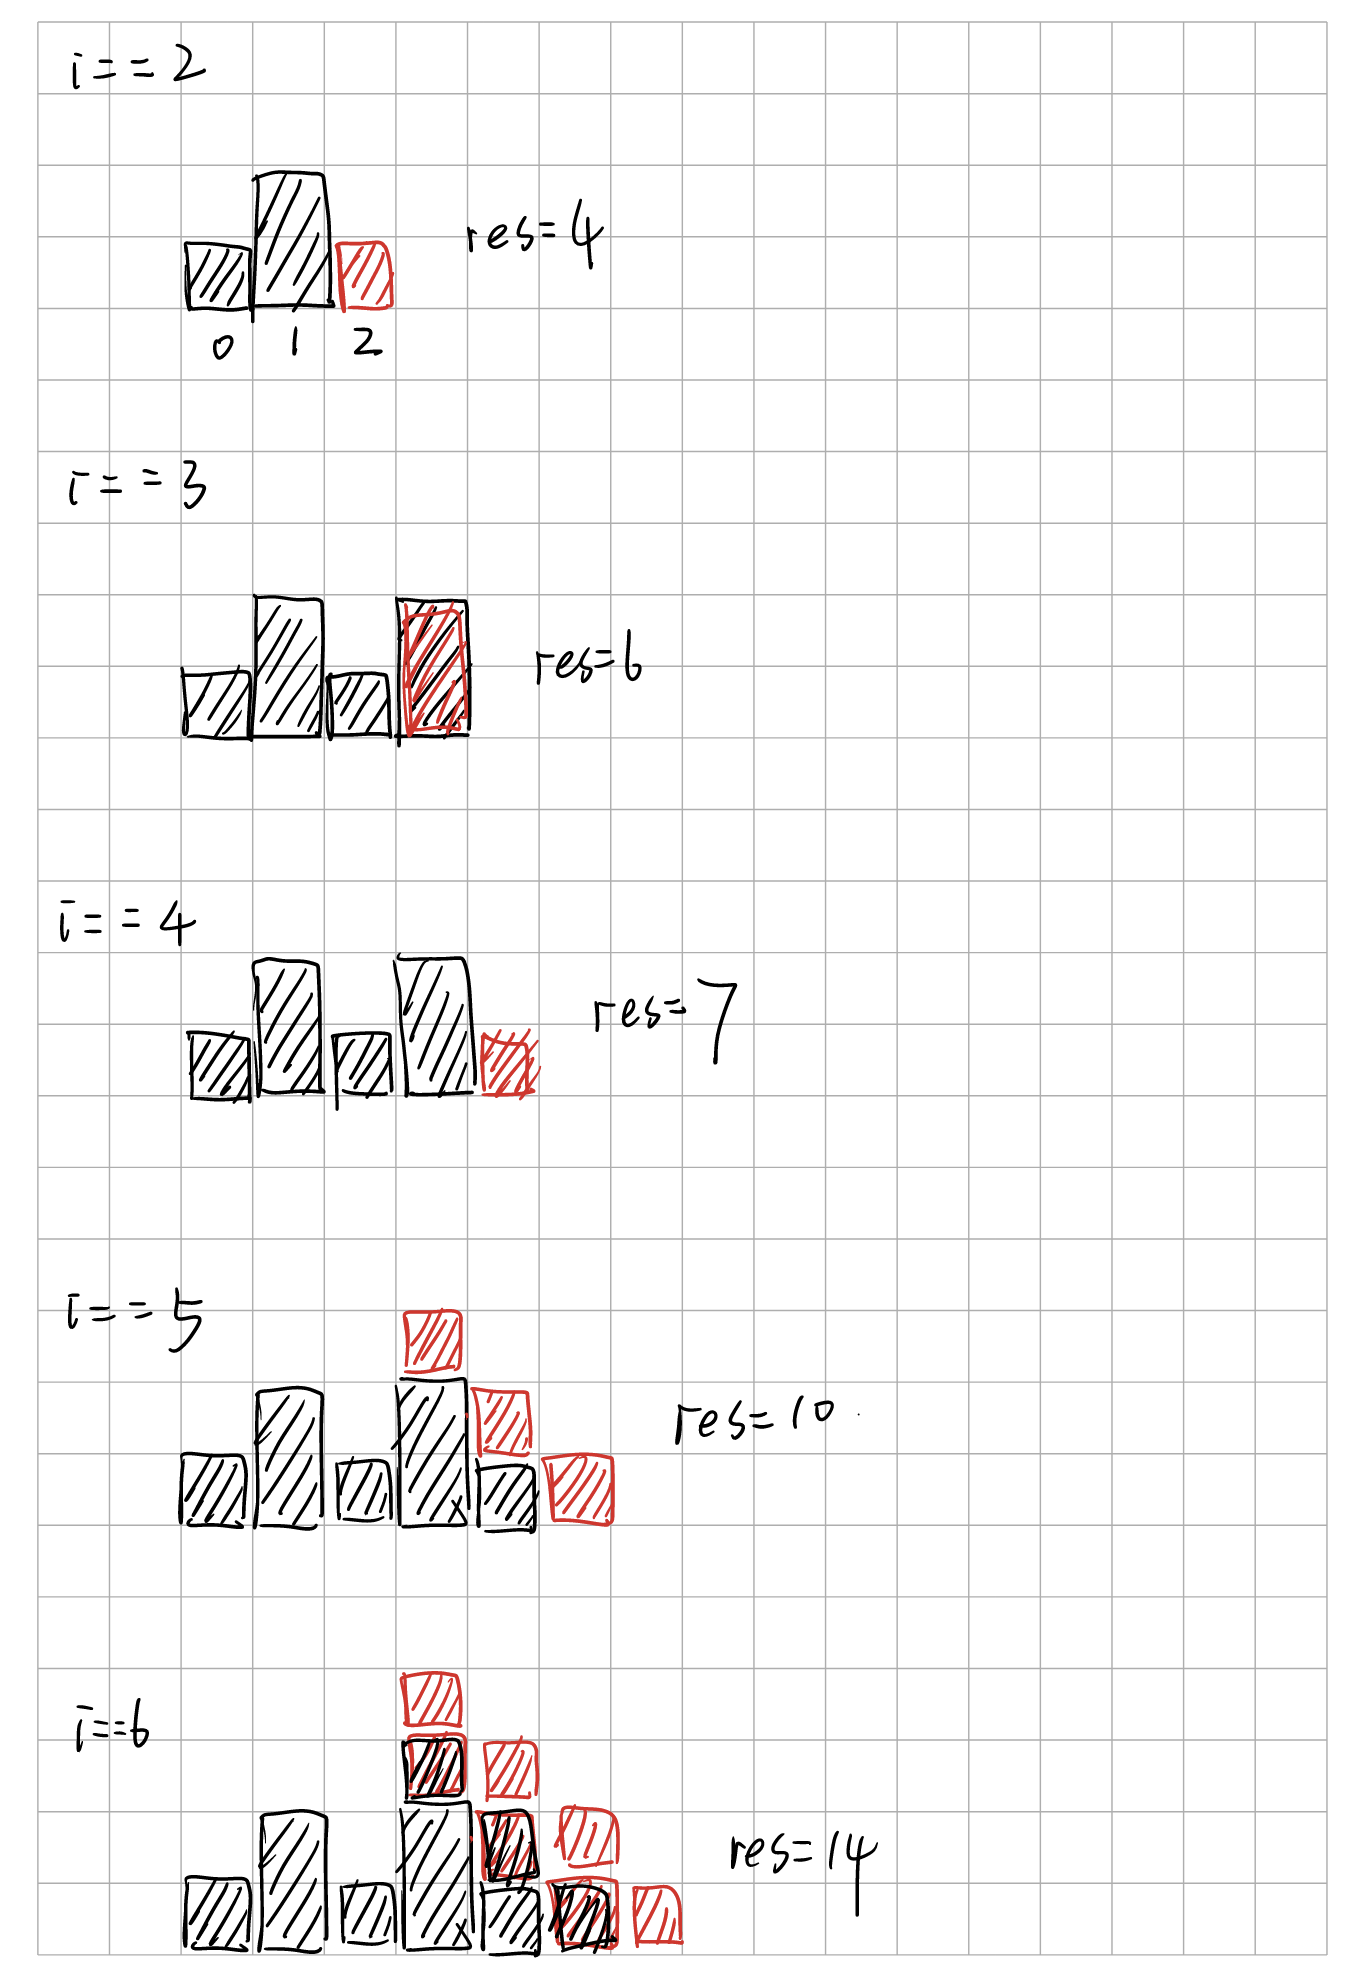 i==2
res=4
0 1 2
i==3
res=6
i==4
res=7
i==5
res=10
i==6
res=14